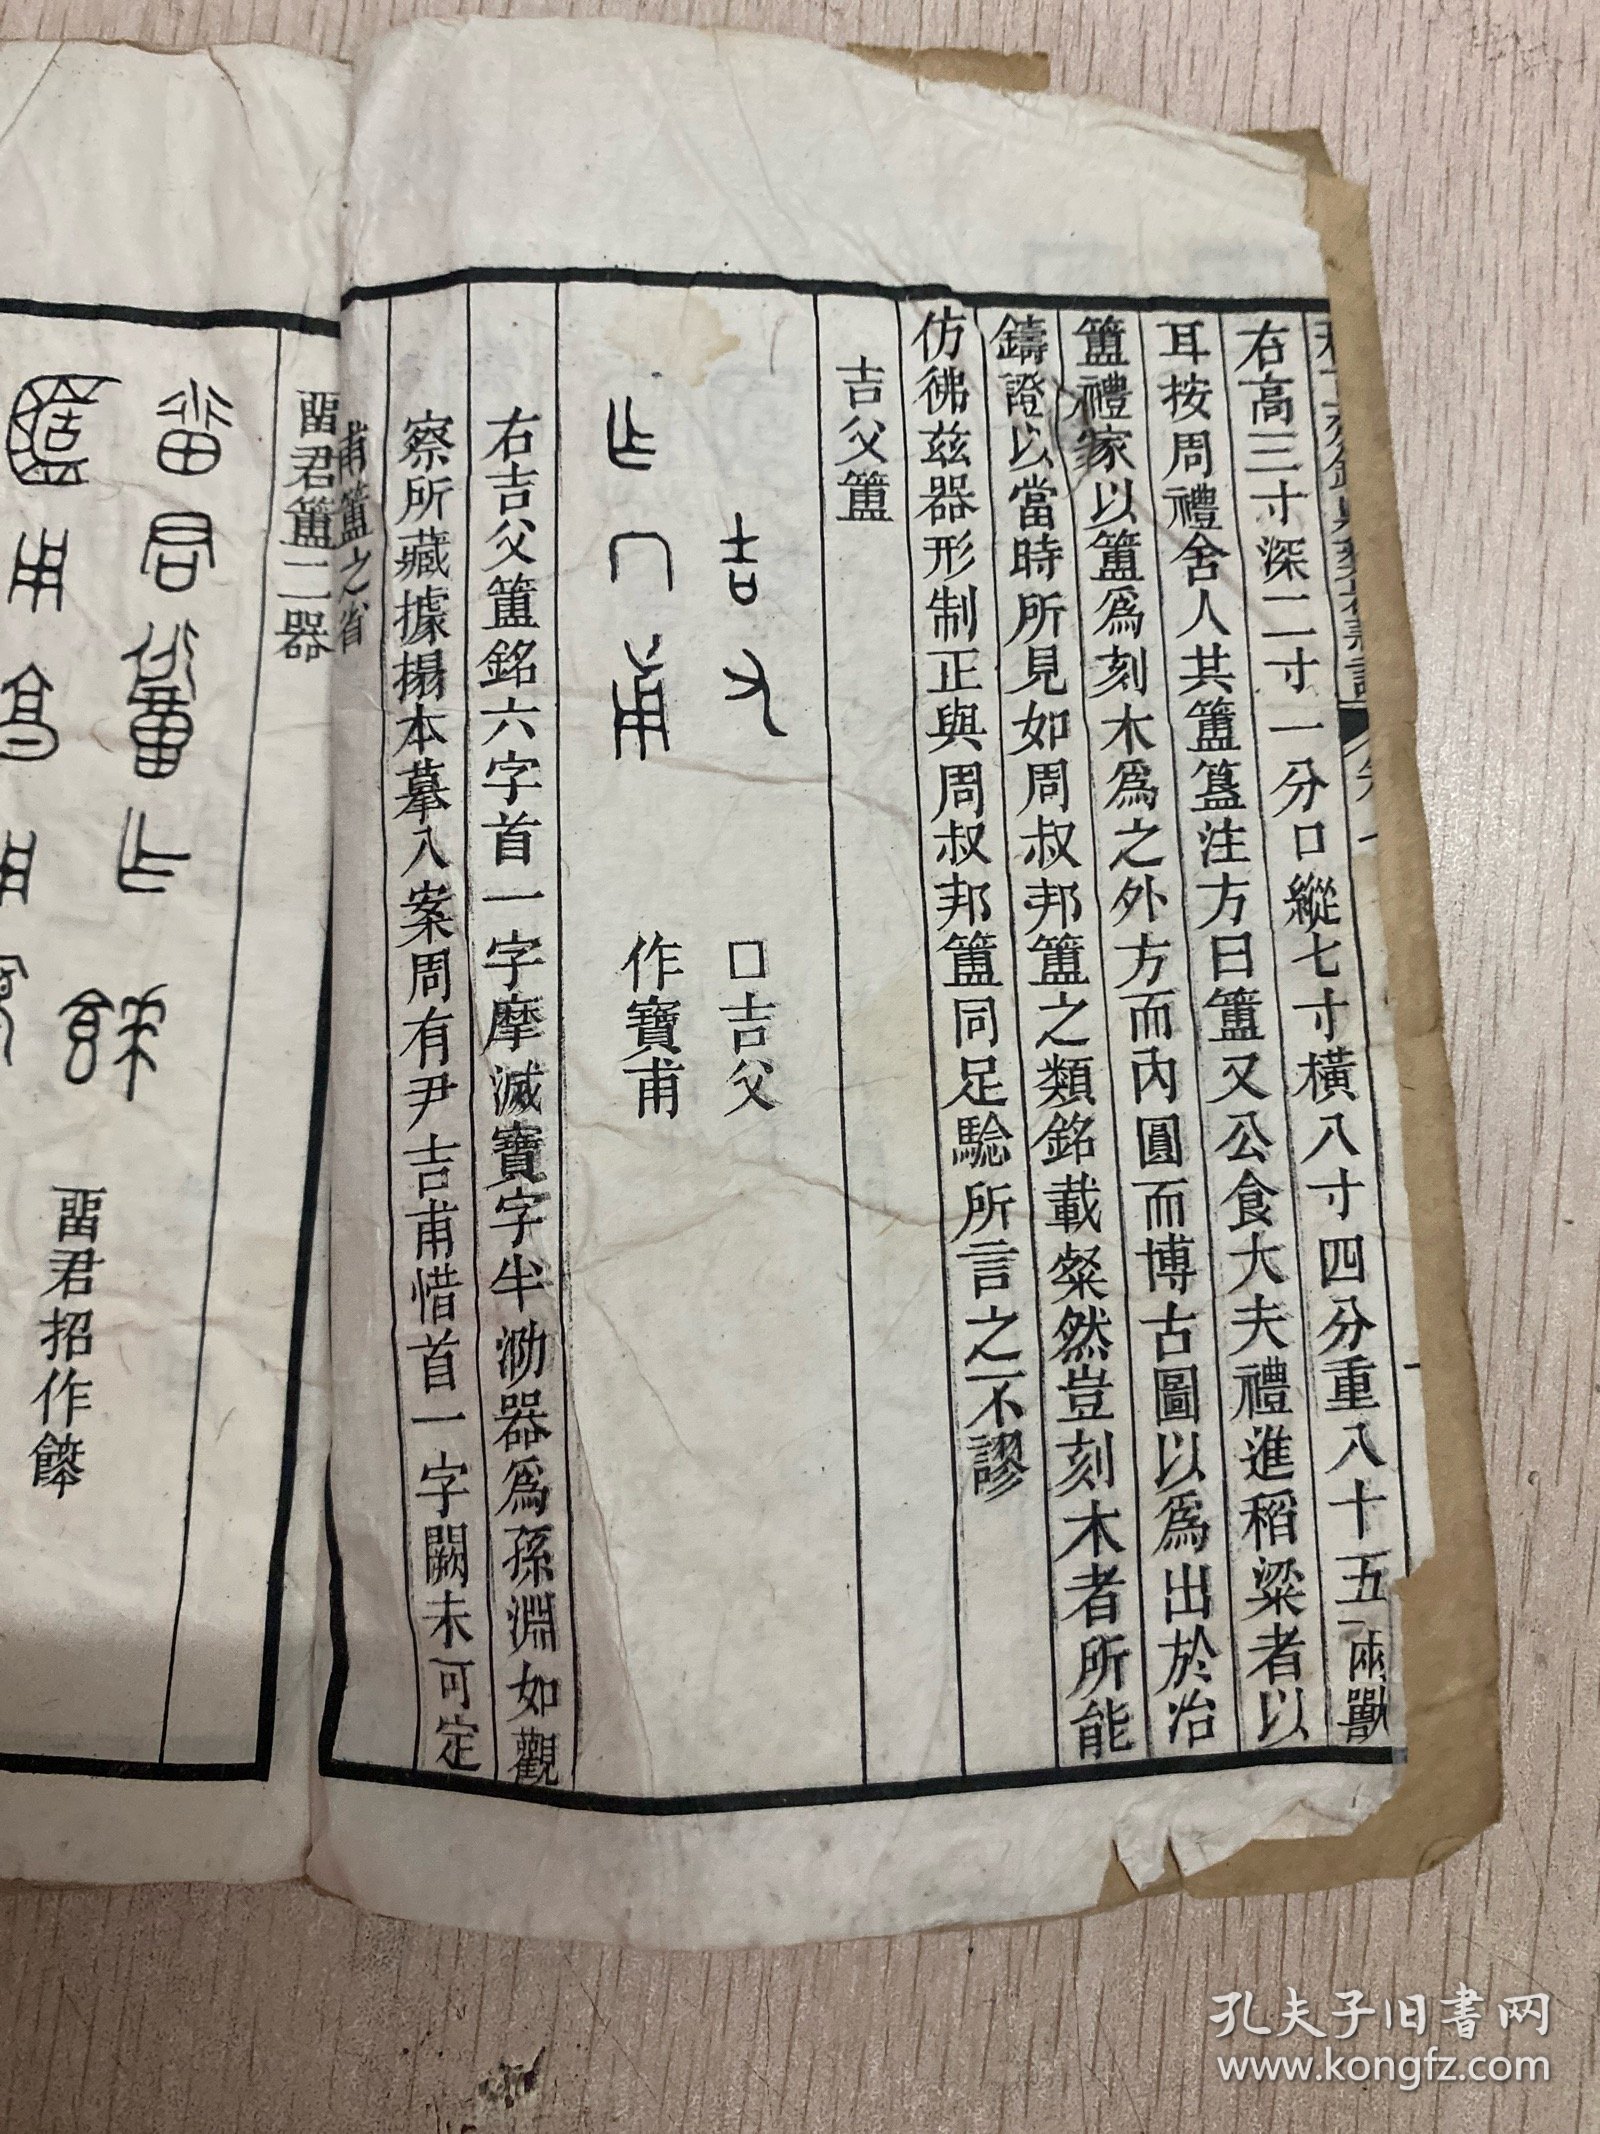 右高三寸深二寸一分口縱七寸橫八寸四分重八十五兩獸
耳按周禮舍人共簠簋注方曰簠又公食大夫禮進稻粱者以
簠禮家以簠爲刻木爲之外方而內圓而博古圖以爲出於冶
鑄證以當時所見如周叔邦簠之類銘載粲然豈刻木者所能
仿彿茲器形制正與周叔邦簠同足驗所言之不謬
吉父簠
口吉父
作寶甫
右吉父簠銘六字首一字摩滅寶字半泐器爲孫淵如觀
察所藏據搨本摹入案周有尹吉甫惜首一字闕未可定
甫簠之省
畱君簠二器
畱君招作餴
孔夫子旧书网
www.kongfz.com